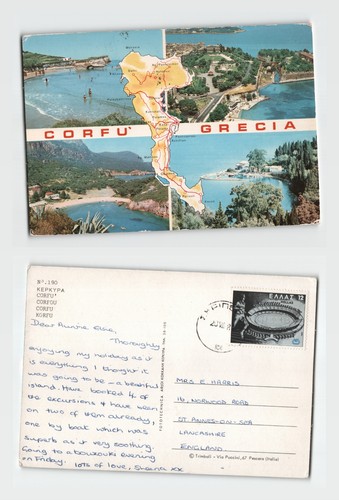 CORFU' GRECIA
N°.190
ΚΕΡΚΥΡΑ
CORFU'
CORFOU
CORFU
KORFU
Dear Auntie Elsie,
Thoroughly
enjoying my holiday as it
is everything I thought it
was going to be - a beautiful
island. Have booked 4 of
the excursions & have been
on two of them already,
one by boat which was
superb as it very soothing
Going to a bouzouki evening
on Friday. Lots of love, Sheena xx
ΕΛΛΑΣ 12
MRS E HARRIS
16, NORWOOD ROAD
ST. ANNES-ON-SEA
LANCASHIRE
ENGLAND
© Triaboli - Via Puccini, 67 Pesaro (Italia)